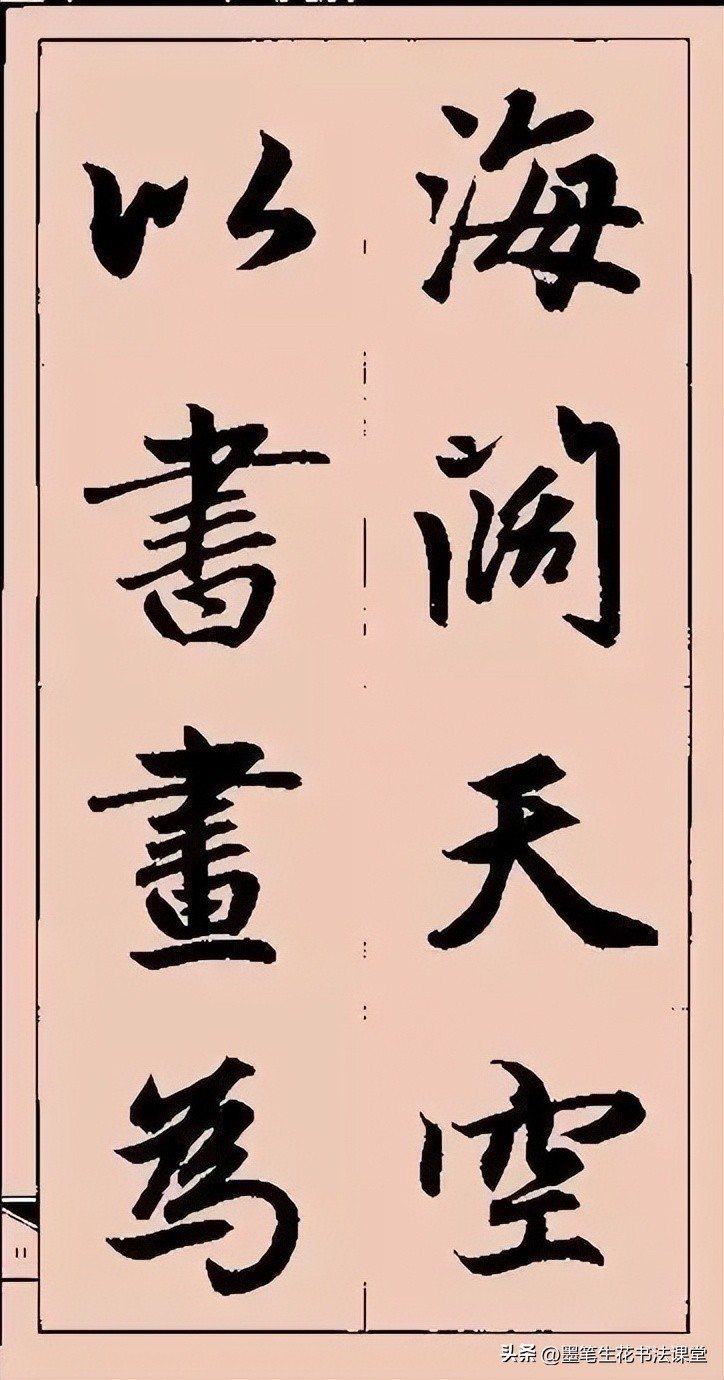 海闊天空
以書畫為
頭条 @墨笔生花书法课堂